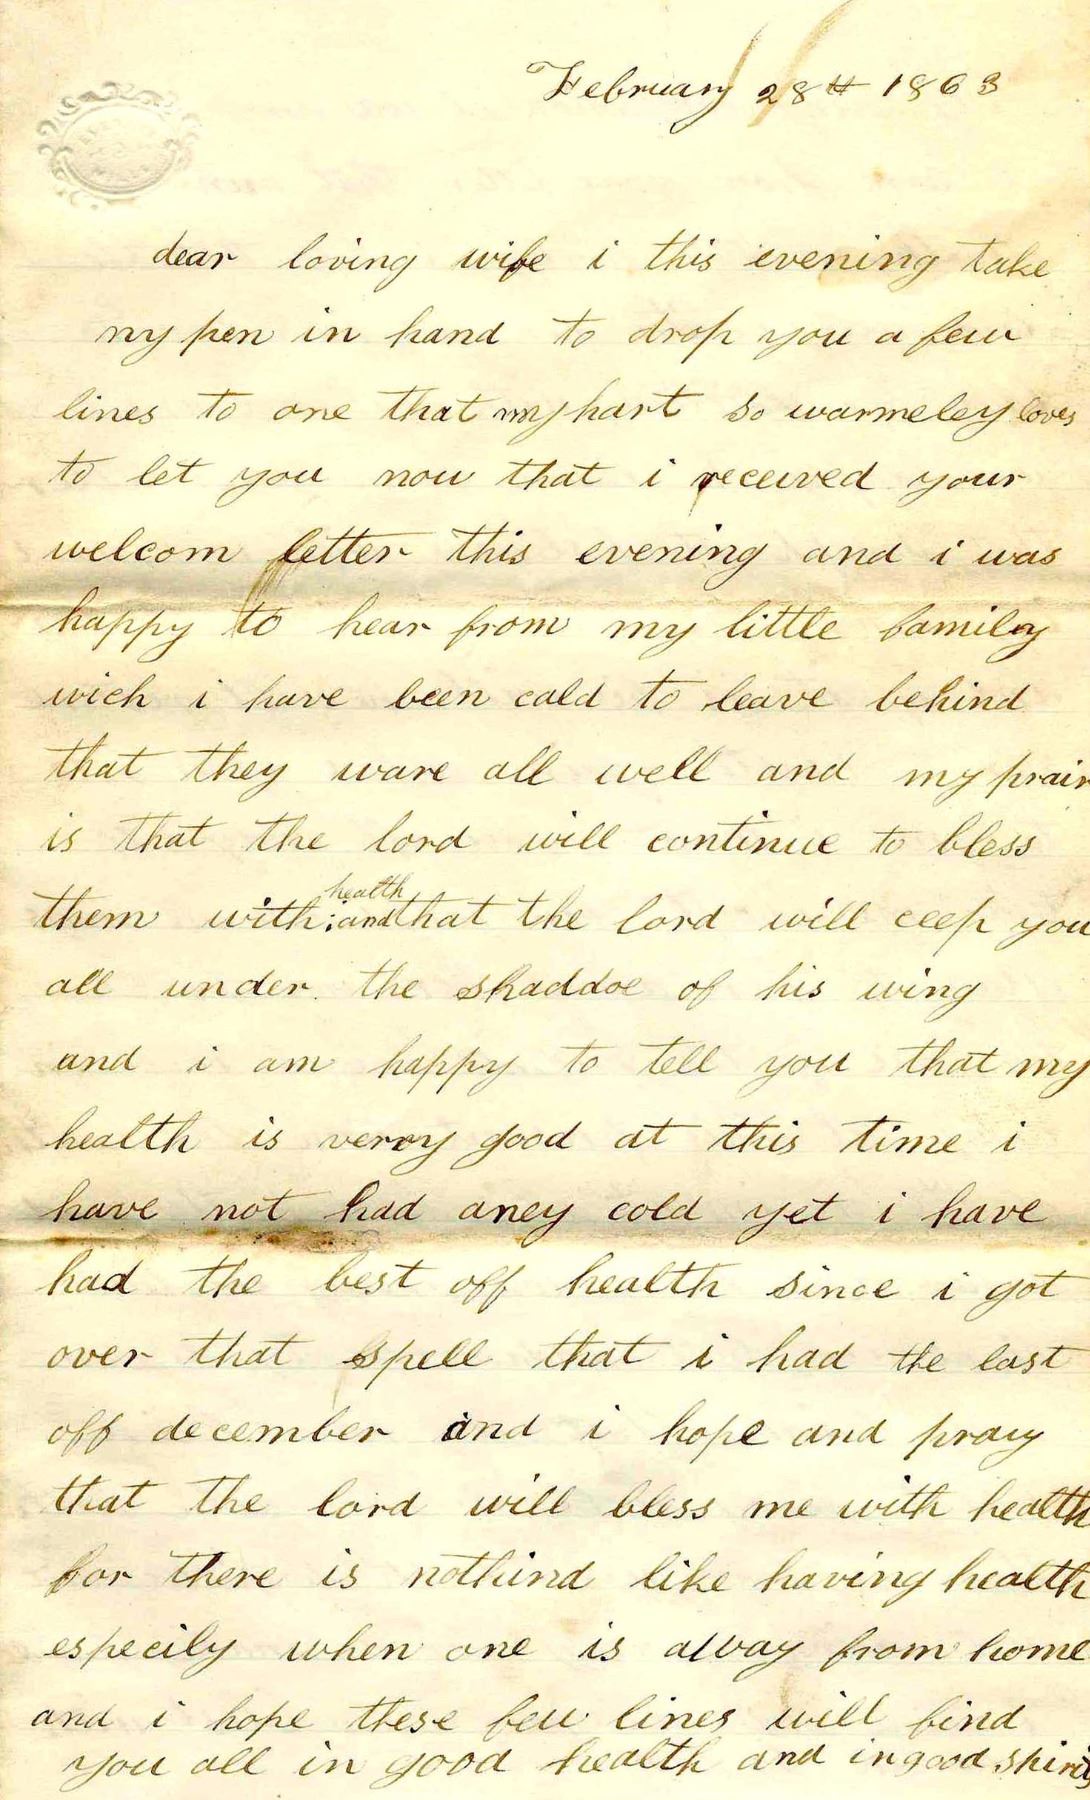 February 28th 1863
dear loving wife i this evening take
my pen in hand to drop you a few
lines to one that my hart so warmeley loves
to let you now that i received your
welcom letter this evening and i was
happy to hear from my little family
wich i have been cald to leave behind
that they ware all well and my prair
is that the lord will continue to bless
health
them with ; and that the lord will ceep you
all under the shaddoe of his wing
and i am happy to tell you that my
health is verry good at this time i
have not had aney cold yet i have
had the best off health since i got
over that spell that i had the last
off december and i hope and pray
that the lord will bless me with health
for there is nothind like having health
especily when one is away from home
and i hope these few lines will find
you all in good health and in good spirits